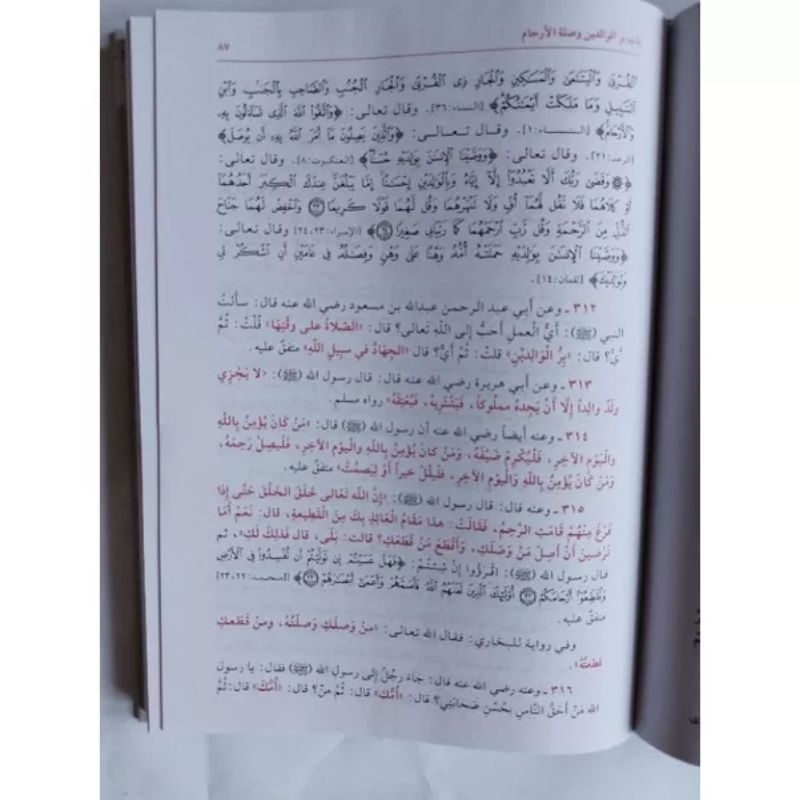 باب بر الوالدين وصلة الأرحام ٨٧
ٱلْقُرْبَىٰ وَٱلْيَتَٰمَىٰ وَٱلْمَسَٰكِينِ وَٱلْجَارِ ذِى ٱلْقُرْبَىٰ وَٱلْجَارِ ٱلْجُنُبِ وَٱلصَّاحِبِ بِٱلْجَنۢبِ وَٱبْنِ
ٱلسَّبِيلِ وَمَا مَلَكَتْ أَيْمَٰنُكُمْ﴾ [النساء: ٣٦]. وقال تعالى: ﴿وَٱتَّقُوا۟ ٱللَّهَ ٱلَّذِى تَسَآءَلُونَ بِهِۦ
وَٱلْأَرْحَامَ﴾ [النساء: ١]. وقال تعالى: ﴿وَٱلَّذِينَ يَصِلُونَ مَآ أَمَرَ ٱللَّهُ بِهِۦٓ أَن يُوصَلَ﴾
[الرعد: ٢١]. وقال تعالى: ﴿وَوَصَّيْنَا ٱلْإِنسَٰنَ بِوَٰلِدَيْهِ حُسْنًا﴾ [العنكبوت: ٨]. وقال تعالى:
﴿۞ وَقَضَىٰ رَبُّكَ أَلَّا تَعْبُدُوٓا۟ إِلَّآ إِيَّاهُ وَبِٱلْوَٰلِدَيْنِ إِحْسَٰنًا إِمَّا يَبْلُغَنَّ عِندَكَ ٱلْكِبَرَ أَحَدُهُمَآ
أَوْ كِلَاهُمَا فَلَا تَقُل لَّهُمَآ أُفٍّ وَلَا تَنْهَرْهُمَا وَقُل لَّهُمَا قَوْلًا كَرِيمًا ﴿٢٣﴾ وَٱخْفِضْ لَهُمَا جَنَاحَ
ٱلذُّلِّ مِنَ ٱلرَّحْمَةِ وَقُل رَّبِّ ٱرْحَمْهُمَا كَمَا رَبَّيَانِى صَغِيرًا ﴿٢٤﴾﴾ [الإسراء: ٢٣، ٢٤] وقال تعالى:
﴿وَوَصَّيْنَا ٱلْإِنسَٰنَ بِوَٰلِدَيْهِ حَمَلَتْهُ أُمُّهُۥ وَهْنًا عَلَىٰ وَهْنٍ وَفِصَٰلُهُۥ فِى عَامَيْنِ أَنِ ٱشْكُرْ لِى
وَلِوَٰلِدَيْكَ﴾ [لقمان: ١٤].
٣١٢ ـ وعن أبي عبد الرحمن عبدالله بن مسعود رضي الله عنه قال: سألتُ
النبي (ﷺ): أيُّ العملِ أحبُّ إلى اللَّهِ تعالى؟ قال: «الصَّلاةُ على وقْتِهَا» قُلْتُ: ثُمَّ
أيُّ؟ قال: «بِرُّ الْوَالِدَيْنِ» قلتُ: ثُمَّ أيُّ؟ قال «الجِهَادُ في سبِيلِ اللَّهِ» متفقٌ عليه.
٣١٣ ـ وعن أبي هريرة رضي الله عنه قال: قال رسول الله (ﷺ): «لا يَجْزِي
ولَدٌ والِداً إلَّا أنْ يَجِدَهُ مملُوكاً، فَيَشْتَرِيهُ، فَيُعْتِقَهُ» رواه مسلم.
٣١٤ ـ وعنه أيضاً رضي الله عنه أن رسول الله (ﷺ) قال: «مَنْ كَانَ يُؤْمِنُ بِاللَّهِ
والْيَومِ الآخِرِ، فَلْيُكْرِمْ ضَيْفَهُ، وَمَنْ كانَ يُؤْمِنُ بِاللَّهِ والْيَومِ الآخِرِ، فَلْيَصِلْ رَحِمَهُ،
وَمَنْ كَانَ يُؤْمِنُ بِاللَّهِ وَالْيَوْمِ الآخِرِ، فَلْيَقُلْ خيراً أوْ لِيَصمُتْ» متفقٌ عليه.
٣١٥ ـ وعنه قال: قال رسول الله (ﷺ): «إنَّ اللَّهَ تَعَالى خَلَقَ الخَلْقَ حَتَّى إذَا
فَرَغَ مِنْهُمْ قَامَتِ الرَّحِمُ، فَقَالَتْ: هذا مَقَامُ العَائِذِ بِكَ مِنَ القَطِيعةِ، قال: نَعَمْ أمَا
تَرْضَينَ أنْ أصِلَ مَنْ وَصَلَكِ، وأقْطَعَ مَنْ قَطَعَكِ؟ قالت: بَلَى، قال فَذلِكَ لَكِ»، ثم
قال رسول الله (ﷺ): اقْرَؤُوا إنْ شِئْتُمْ: ﴿فَهَلْ عَسَيْتُمْ إِن تَوَلَّيْتُمْ أَن تُفْسِدُوا۟ فِى ٱلْأَرْضِ
وَتُقَطِّعُوٓا۟ أَرْحَامَكُمْ ﴿٢٢﴾ أُو۟لَٰٓئِكَ ٱلَّذِينَ لَعَنَهُمُ ٱللَّهُ فَأَصَمَّهُمْ وَأَعْمَىٰٓ أَبْصَٰرَهُمْ ﴿٢٣﴾﴾ [محمد: ٢٢، ٢٣]
متفقٌ عليه.
وفي رواية للبخاري: فقال الله تعالى: «منْ وَصلَكِ وَصلْتُهُ، ومنْ قَطَعكِ
قَطعْتُهُ».
٣١٦ ـ وعنه رضي الله عنه قال: جاءَ رجُلٌ إلى رسولِ الله (ﷺ) فقال: يا رسول
الله مَنْ أحَقُّ النَّاسِ بحُسْنِ صَحَابَتِي؟ قال: «أُمُّكَ» قال: ثُمَّ منْ؟ قال: «أُمُّكَ» قال: ثُمَّ